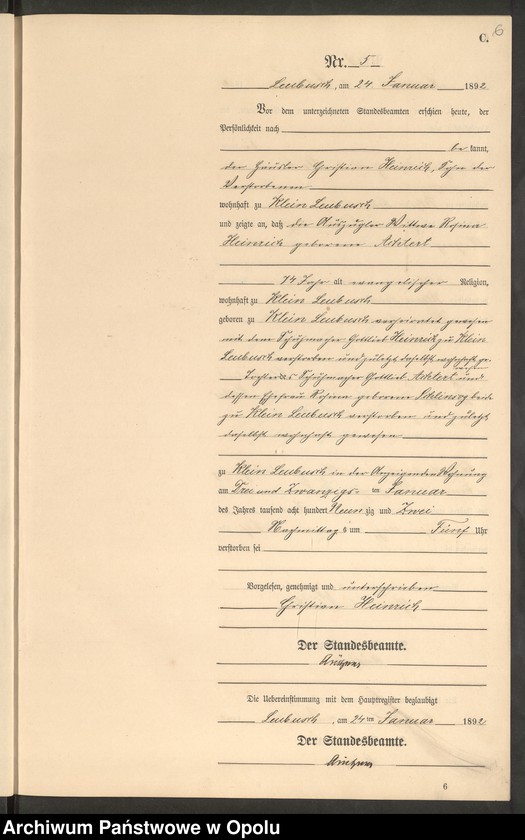 C.
6
Nr. 5
Leubusch, am 24 Januar 1892
Vor dem unterzeichneten Standesbeamten erschien heute, der
Persönlichkeit nach
be kannt,
der Häusler Christian Heinrich, Sohn der
Verstorbenen
wohnhaft zu Klein Leubusch
und zeigte an, daß die Auszügler Wittwe Rosina
Heinrich geborene Achlert
74 Jahr alt evangelischer Religion,
wohnhaft zu Klein Leubusch
geboren zu Klein Leubusch verheirathet gewesen
mit dem Schuhmacher Gottlieb Heinrich zu Klein
Leubusch verstorben und zuletzt daselbst wohnhaft ge-
wesen
Tochter des Schuhmacher Gottlieb Achlert und
dessen Ehefrau Rosina geborene beide
zu Klein Leubusch verstorben und zuletzt
daselbst wohnhaft gewesen
zu Klein Leubusch in der Anzeigenden Wohnung
am Drei und Zwanzigs ten Januar
des Jahres tausend acht hundert Neun zig und Zwei
Nachmittag s um Fünf Uhr
verstorben sei
Vorgelesen, genehmigt und unterschrieben
Christian Heinrich
Der Standesbeamte.
Die Uebereinstimmung mit dem Hauptregister beglaubigt
Leubusch, am 24 ten Januar 1892
Der Standesbeamte.
6
Archiwum Państwowe w Opolu